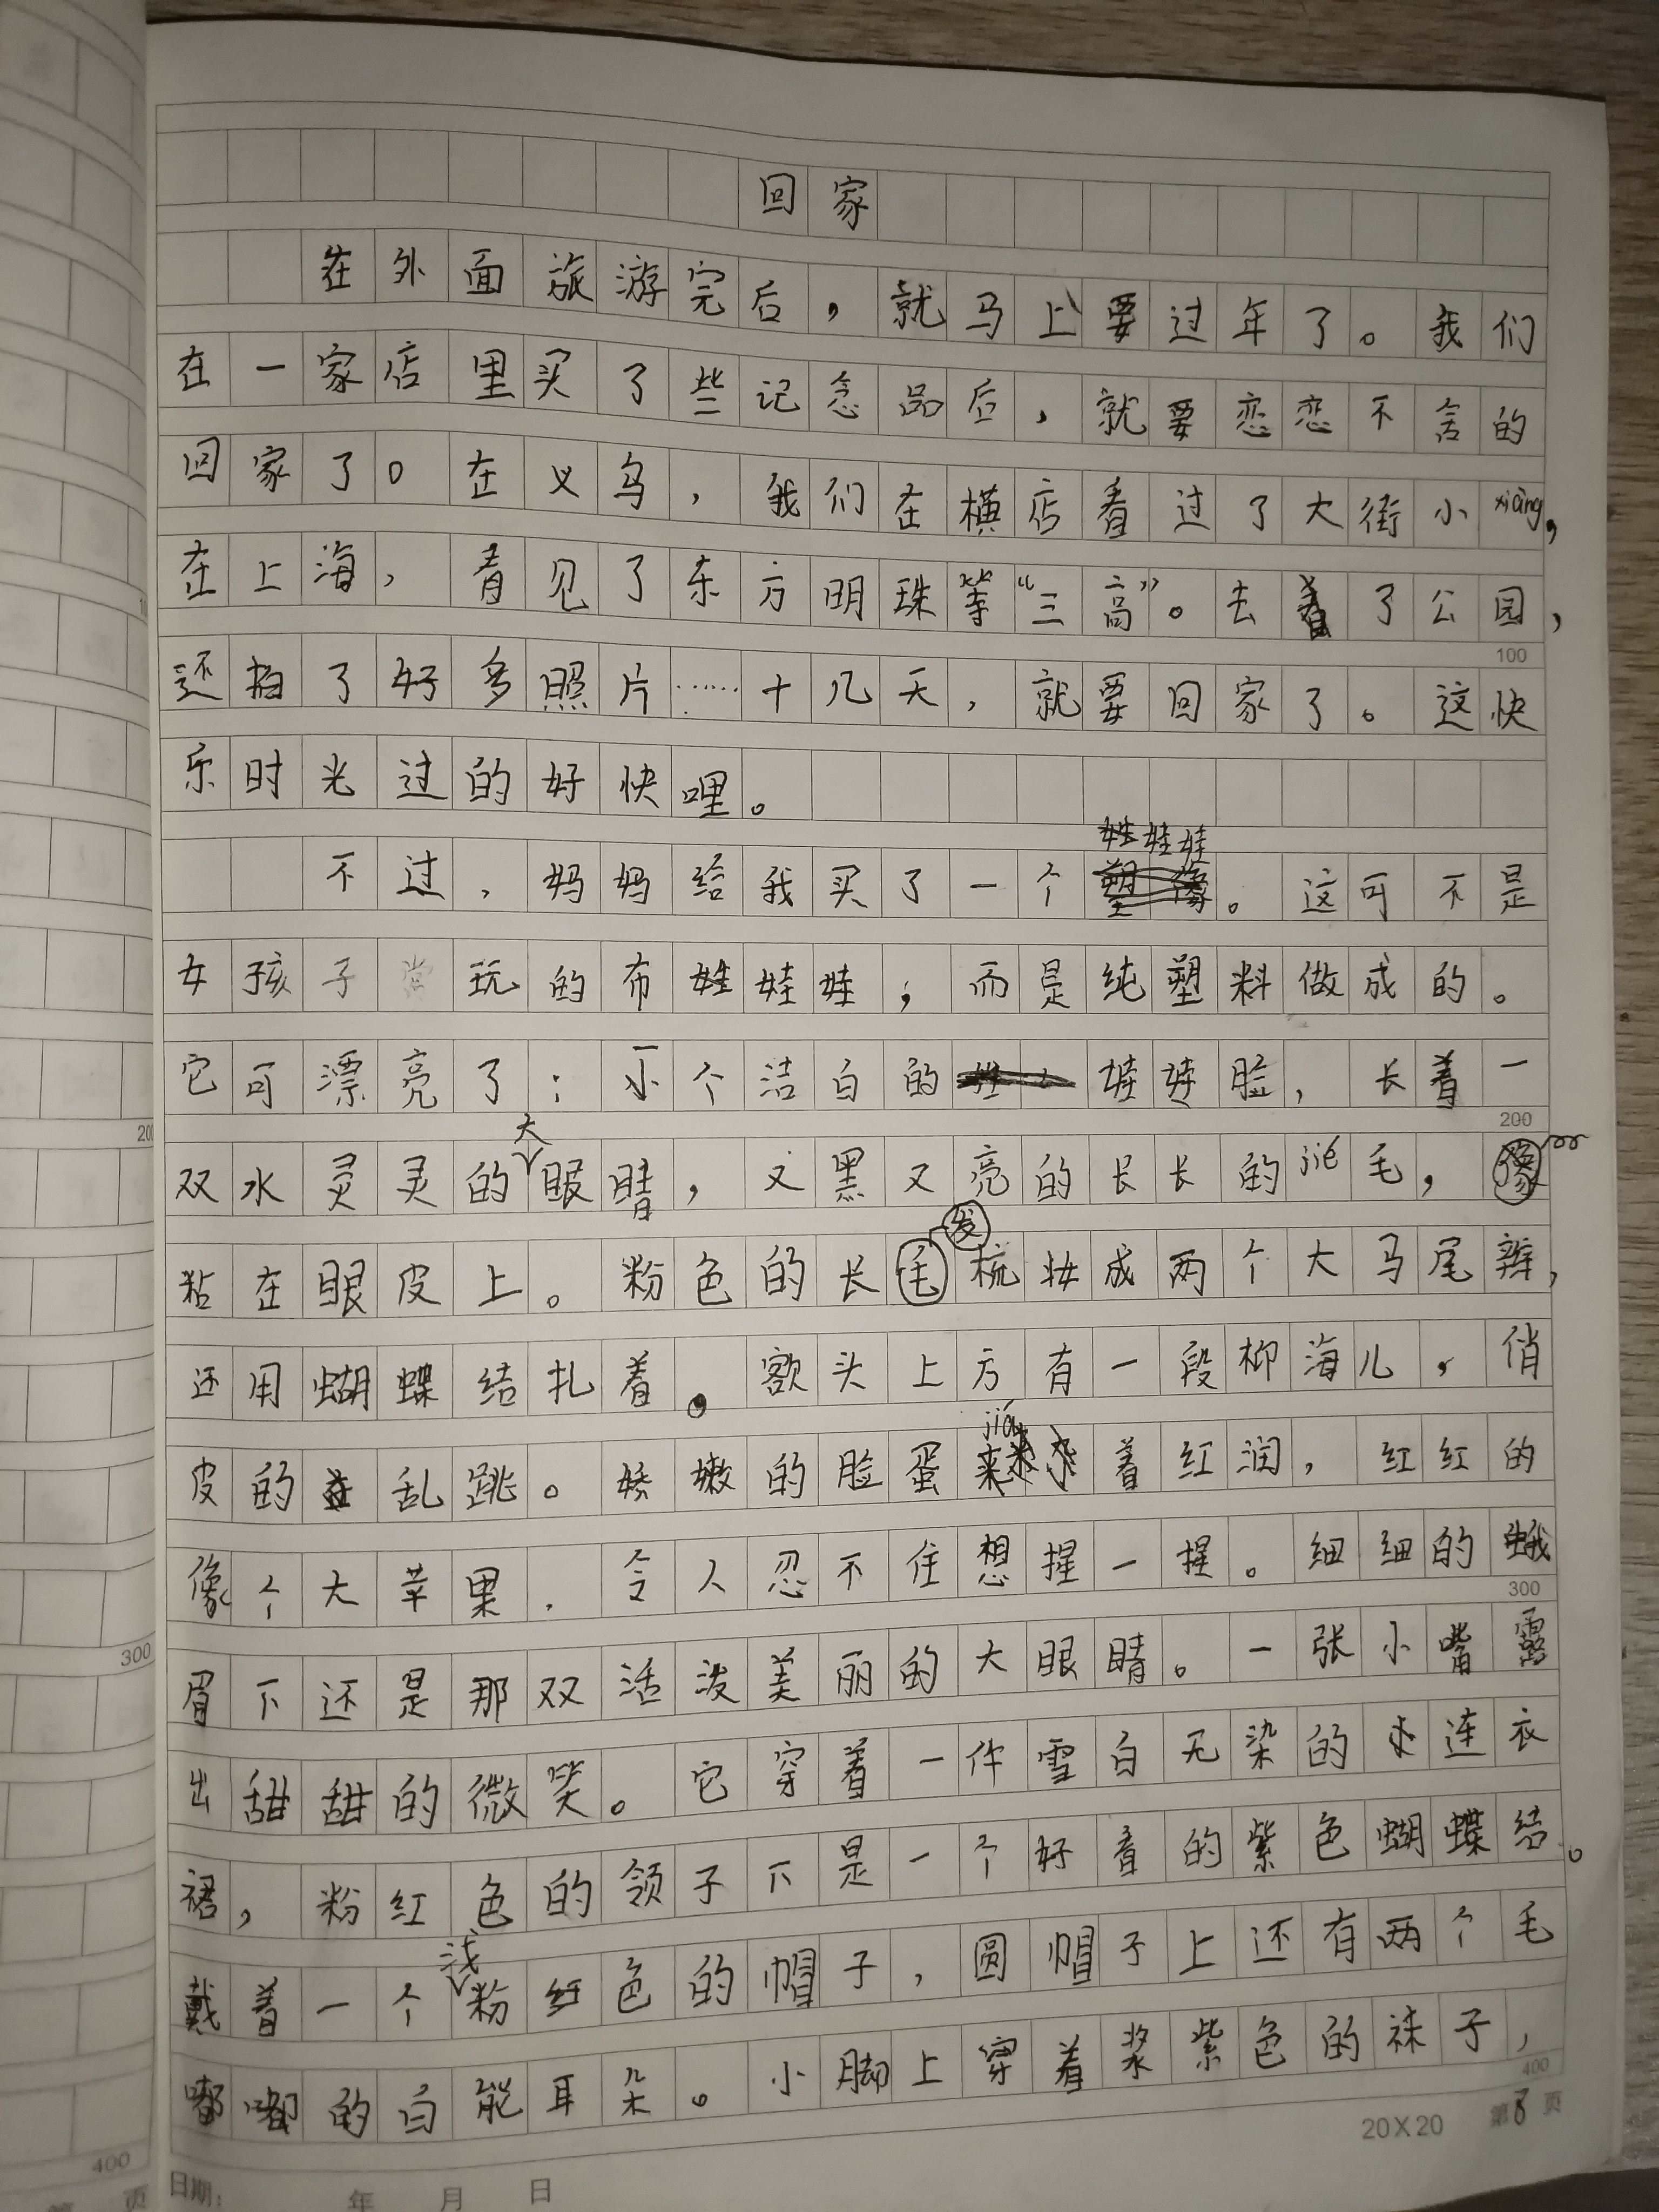 回家
在外面旅游完后，就马上要过年了。我们
在一家店里买了些记念品后，就要恋恋不舍的
回家了。在义乌，我们在横店看过了大街小xiàng，
在上海，看见了东方明珠等“三高”。去看了公园，
还拍了好多照片……十几天，就要回家了。这快
乐时光过的好快哩。
不过，妈妈给我买了一个娃娃娃。这可不是
女孩子常玩的布娃娃娃；而是纯塑料做成的。
它可漂亮了：一小个洁白的娃娃脸，长着一
双水灵灵的大眼睛，又黑又亮的长长的jié毛，像
粘在眼皮上。粉色的长发梳妆成两个大马尾辫，
还用蝴蝶结扎着。额头上方有一段柳海儿，俏
皮的在乱跳。娇嫩的脸蛋jiá着红润，红红的
像个大苹果，令人忍不住想捏一捏。细细的蛾
眉下还是那双活泼美丽的大眼睛。一张小嘴露
出甜甜的微笑。它穿着一件雪白无染的连衣
裙，粉红色的领子下是一个好看的紫色蝴蝶结。
戴着一个浅粉红色的帽子，圆帽子上还有两个毛
嘟嘟的白能耳朵。小脚上穿着浆紫色的袜子，
20×20 第8页
日期： 年 月 日
100
200
300
400
200
300
400
第 页